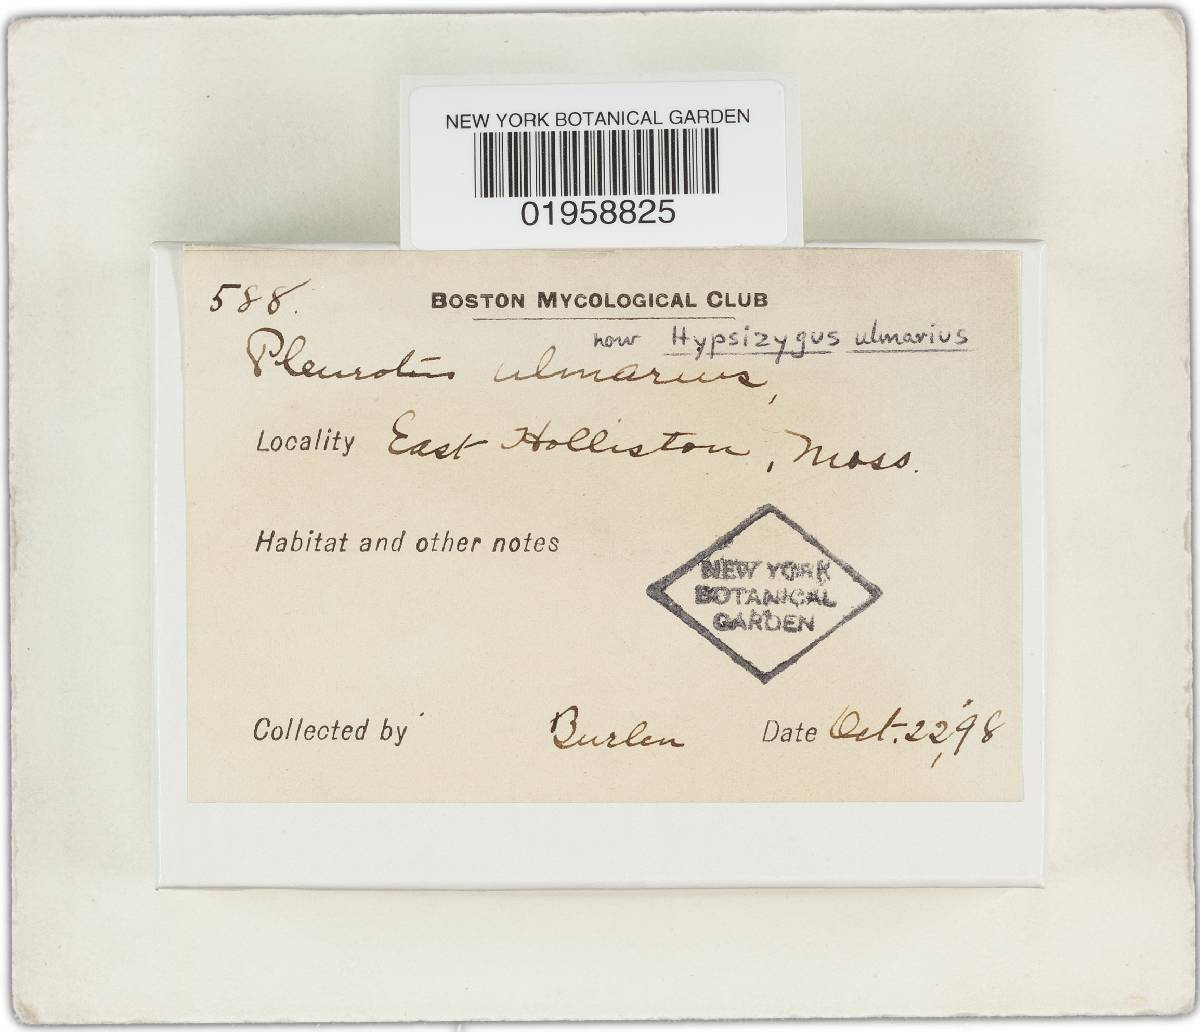 NEW YORK BOTANICAL GARDEN
01958825
588.
BOSTON MYCOLOGICAL CLUB
now Hypsizygus ulmarius
Pleurotus ulmarius,
Locality East Holliston, Mass.
Habitat and other notes
NEW YORK
BOTANICAL
GARDEN
Collected by Burlen Date Oct. 22, '98